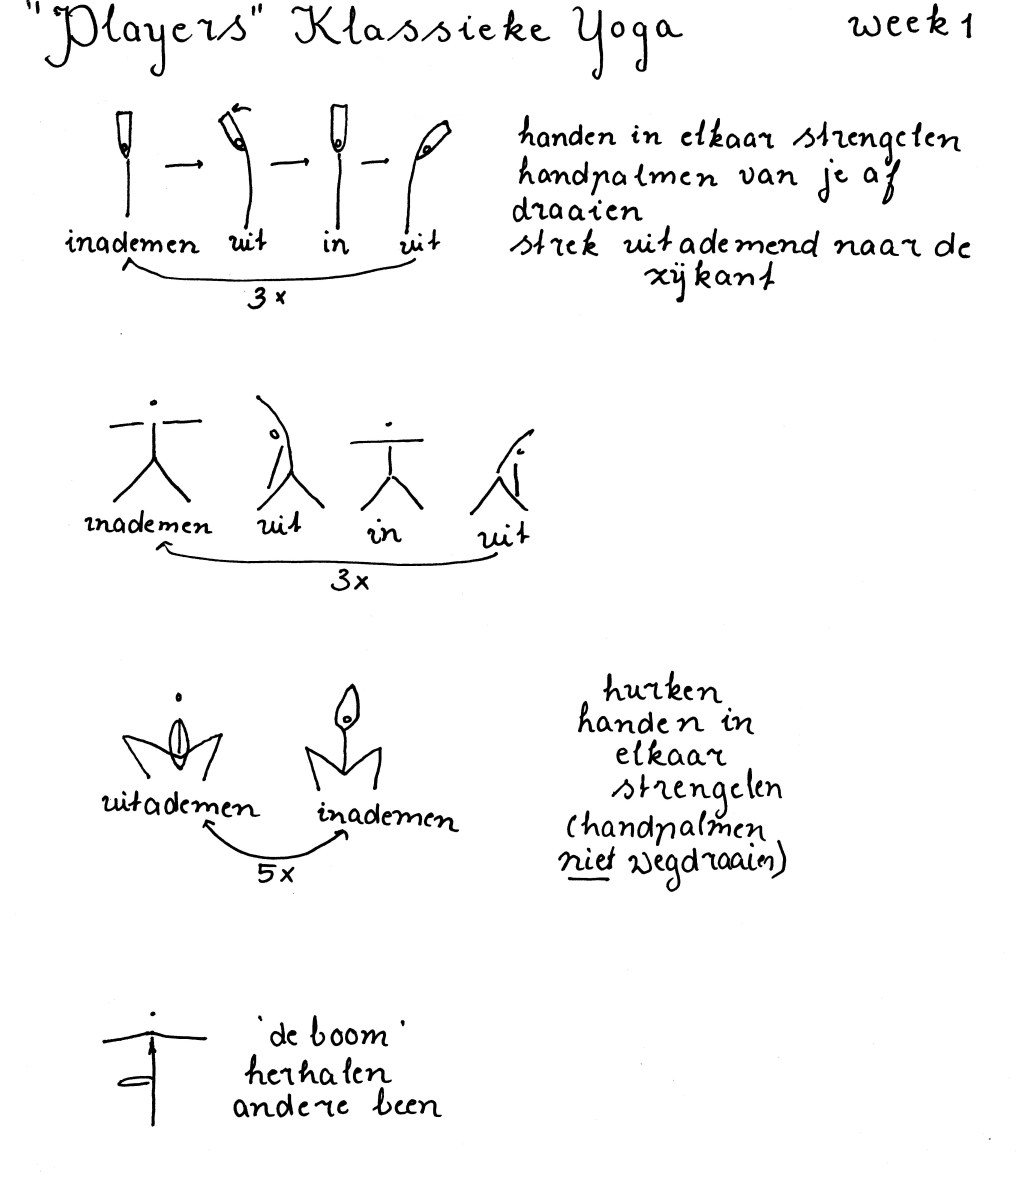 "Players" Klassieke Yoga week 1
handen in elkaar strengelen
handpalmen van je af
draaien
strek uitademend naar de
zijkant
inademen uit in uit
3x
inademen uit in uit
3x
hurken
handen in
elkaar
strengelen
(handpalmen
niet wegdraaien)
uitademen inademen
5x
'de boom'
herhalen
andere been